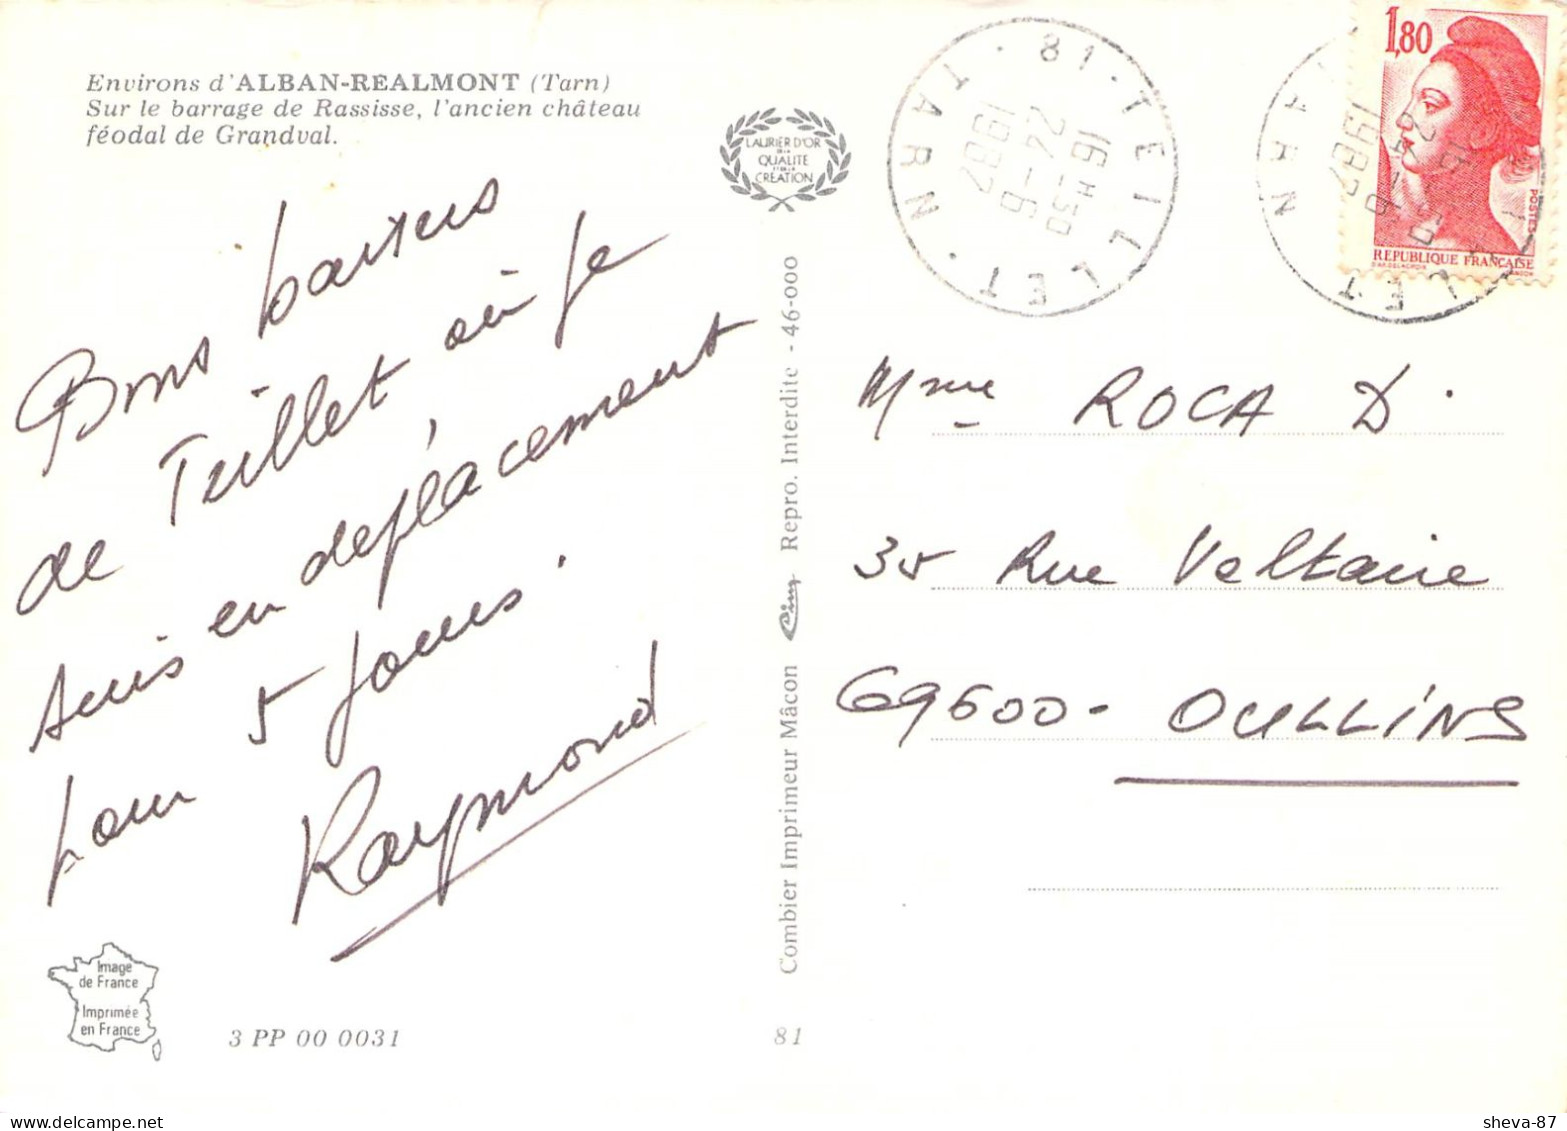 Environs d'ALBAN-REALMONT (Tarn)
Sur le barrage de Rassisse, l'ancien château
féodal de Grandval.
LAURIER D'OR
DE LA
QUALITE
ET DE LA
CREATION
Bons baisers
de Teillet où je
suis en déplacement
pour 5 jours.
Raymond
Image
de France
Imprimée
en France
3 PP 00 0031
81
Combier Imprimeur Mâcon Cim Repro. Interdite - 46-000
81-TEILLET
TARN
16 H 30
22-6
1987
1,80
POSTES
REPUBLIQUE FRANÇAISE
Mme ROCA D.
35 Rue Voltaire
69600 - OULLINS
sheva-87